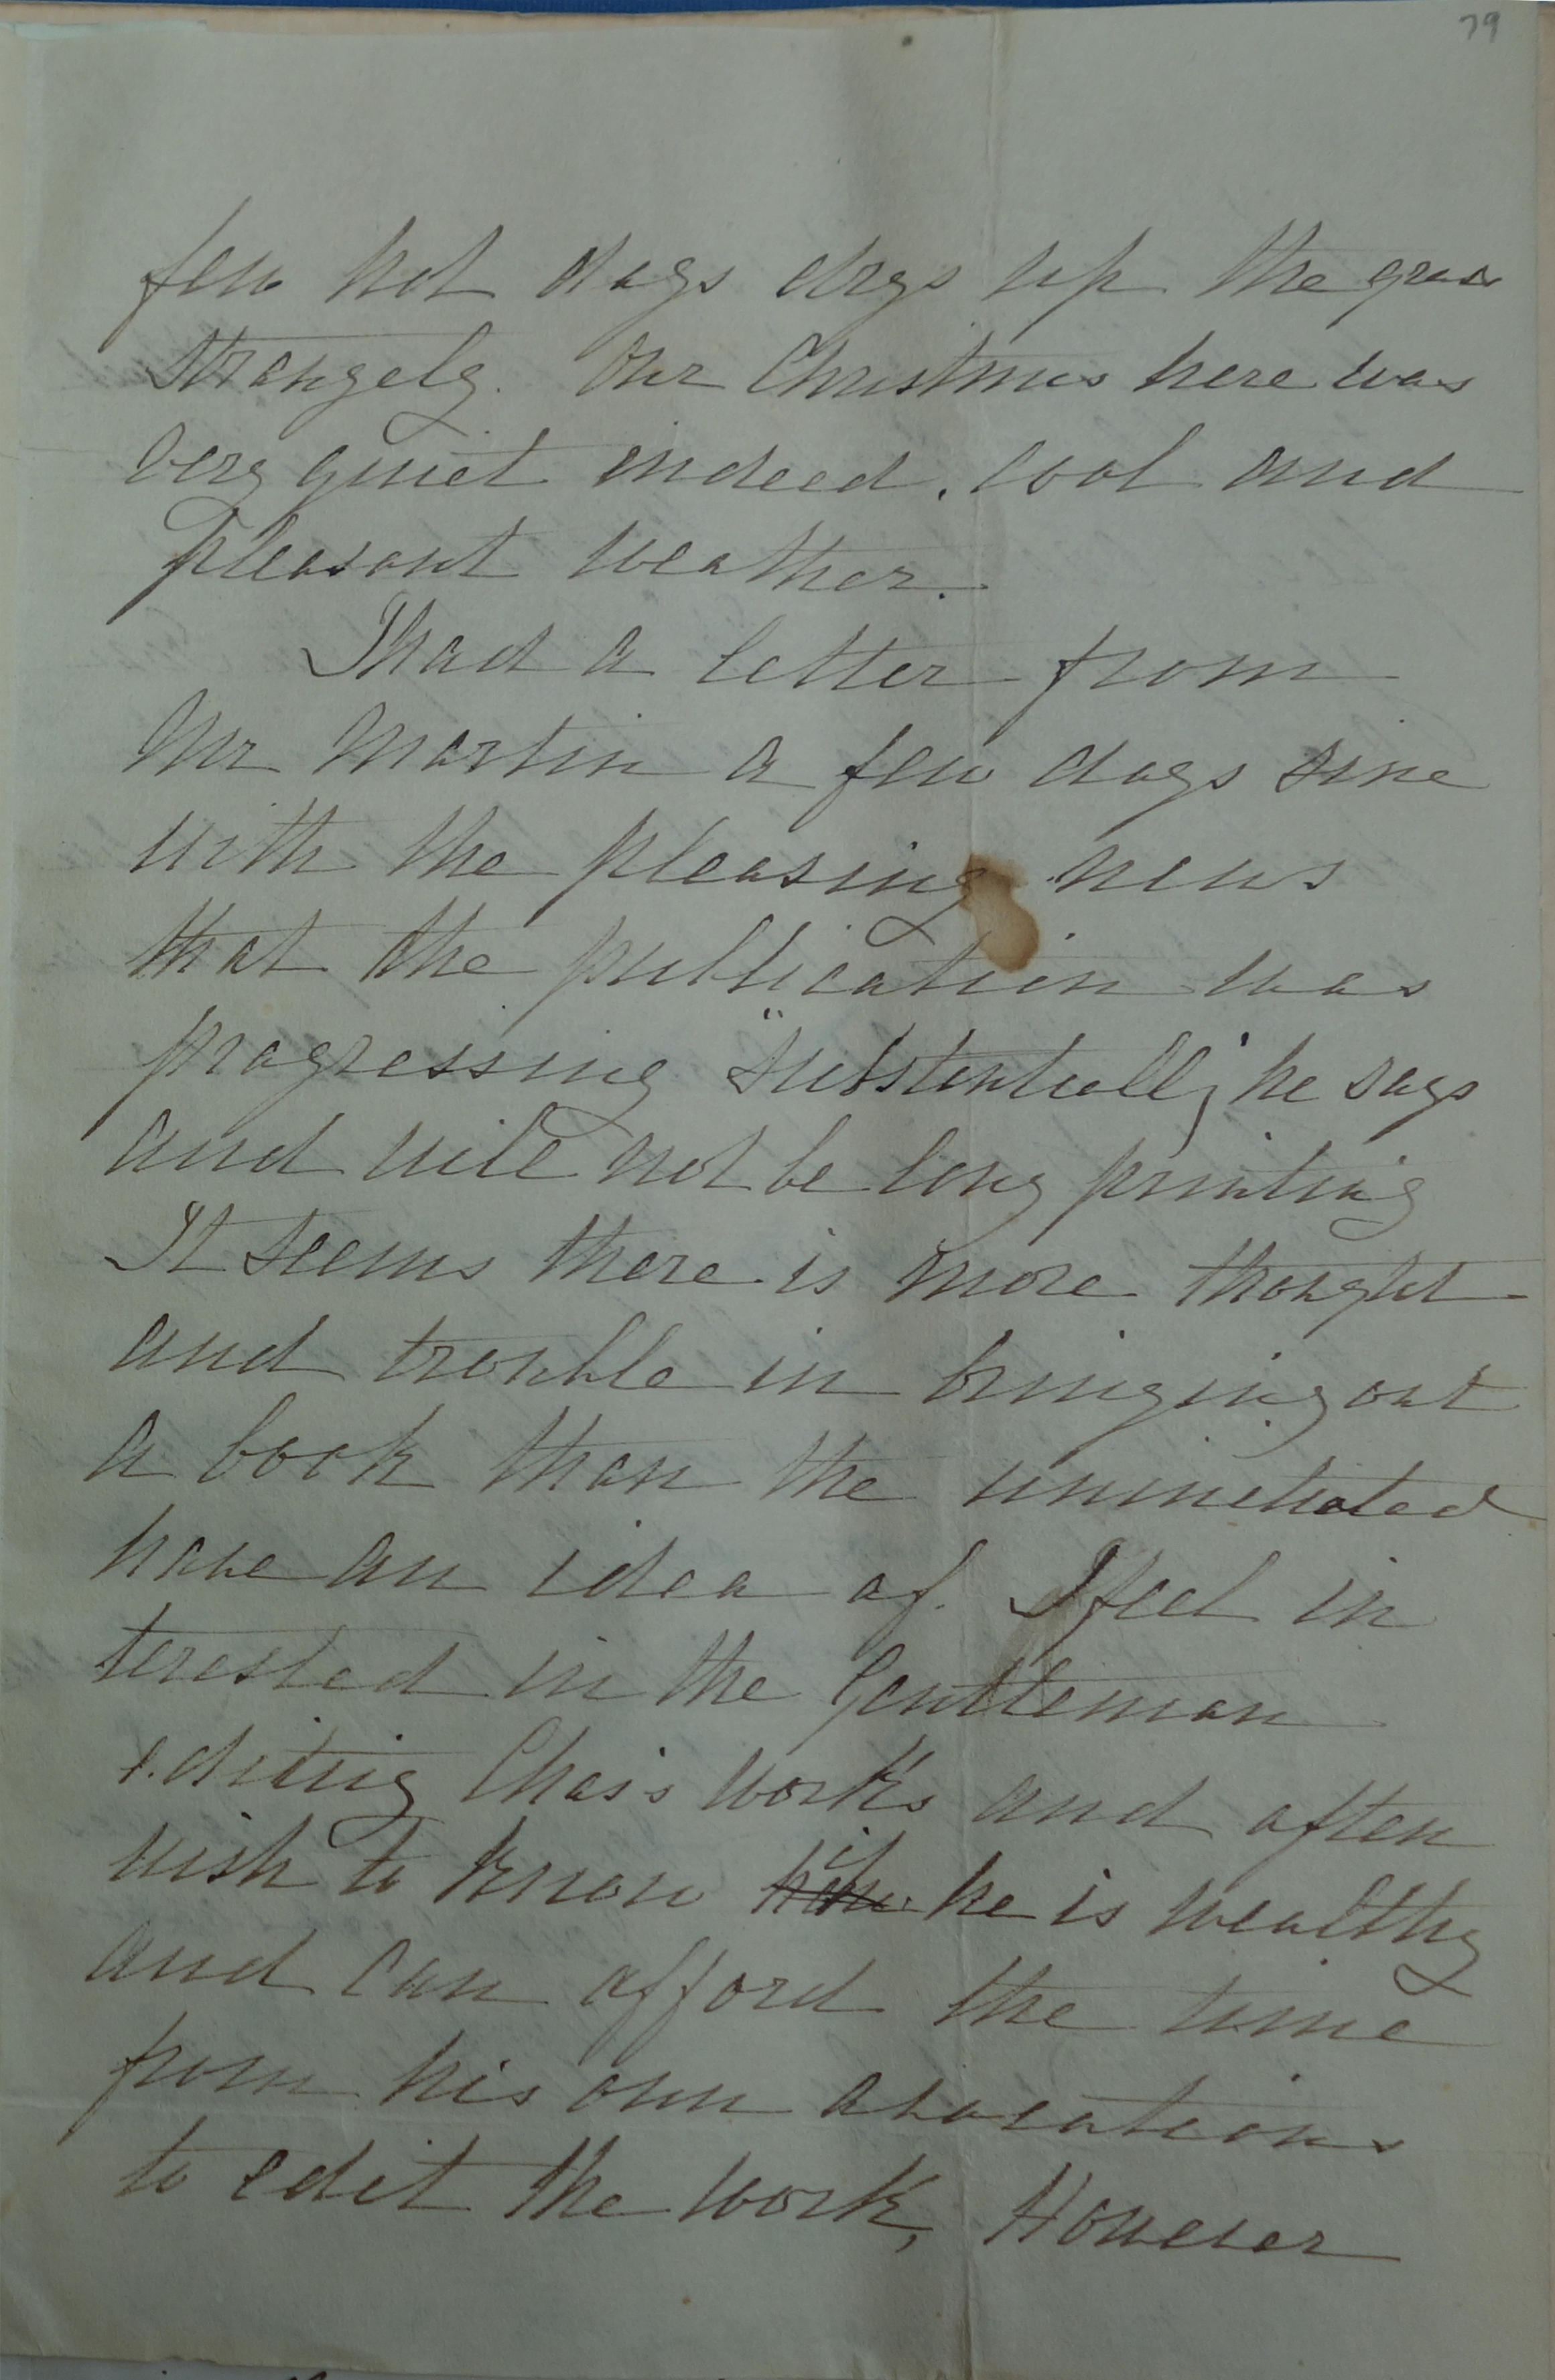 79
few hot days drys up the grass
strangely. Our Christmas here was
very quiet indeed. cool and
pleasant weather.
I had a letter from
Mr Martin a few days sine
with the pleasing news
that the publication was
progressing "substentially" he says
and will not be long printing
It seems there is more thought
and trouble in bringing out
a book than the uninetiated
have an idea of. I feel in
terested in the Gentleman
editing Chas's works and often
wish to know how if he is wealthy
and can afford the time
from his own avocations
to edit the work, However